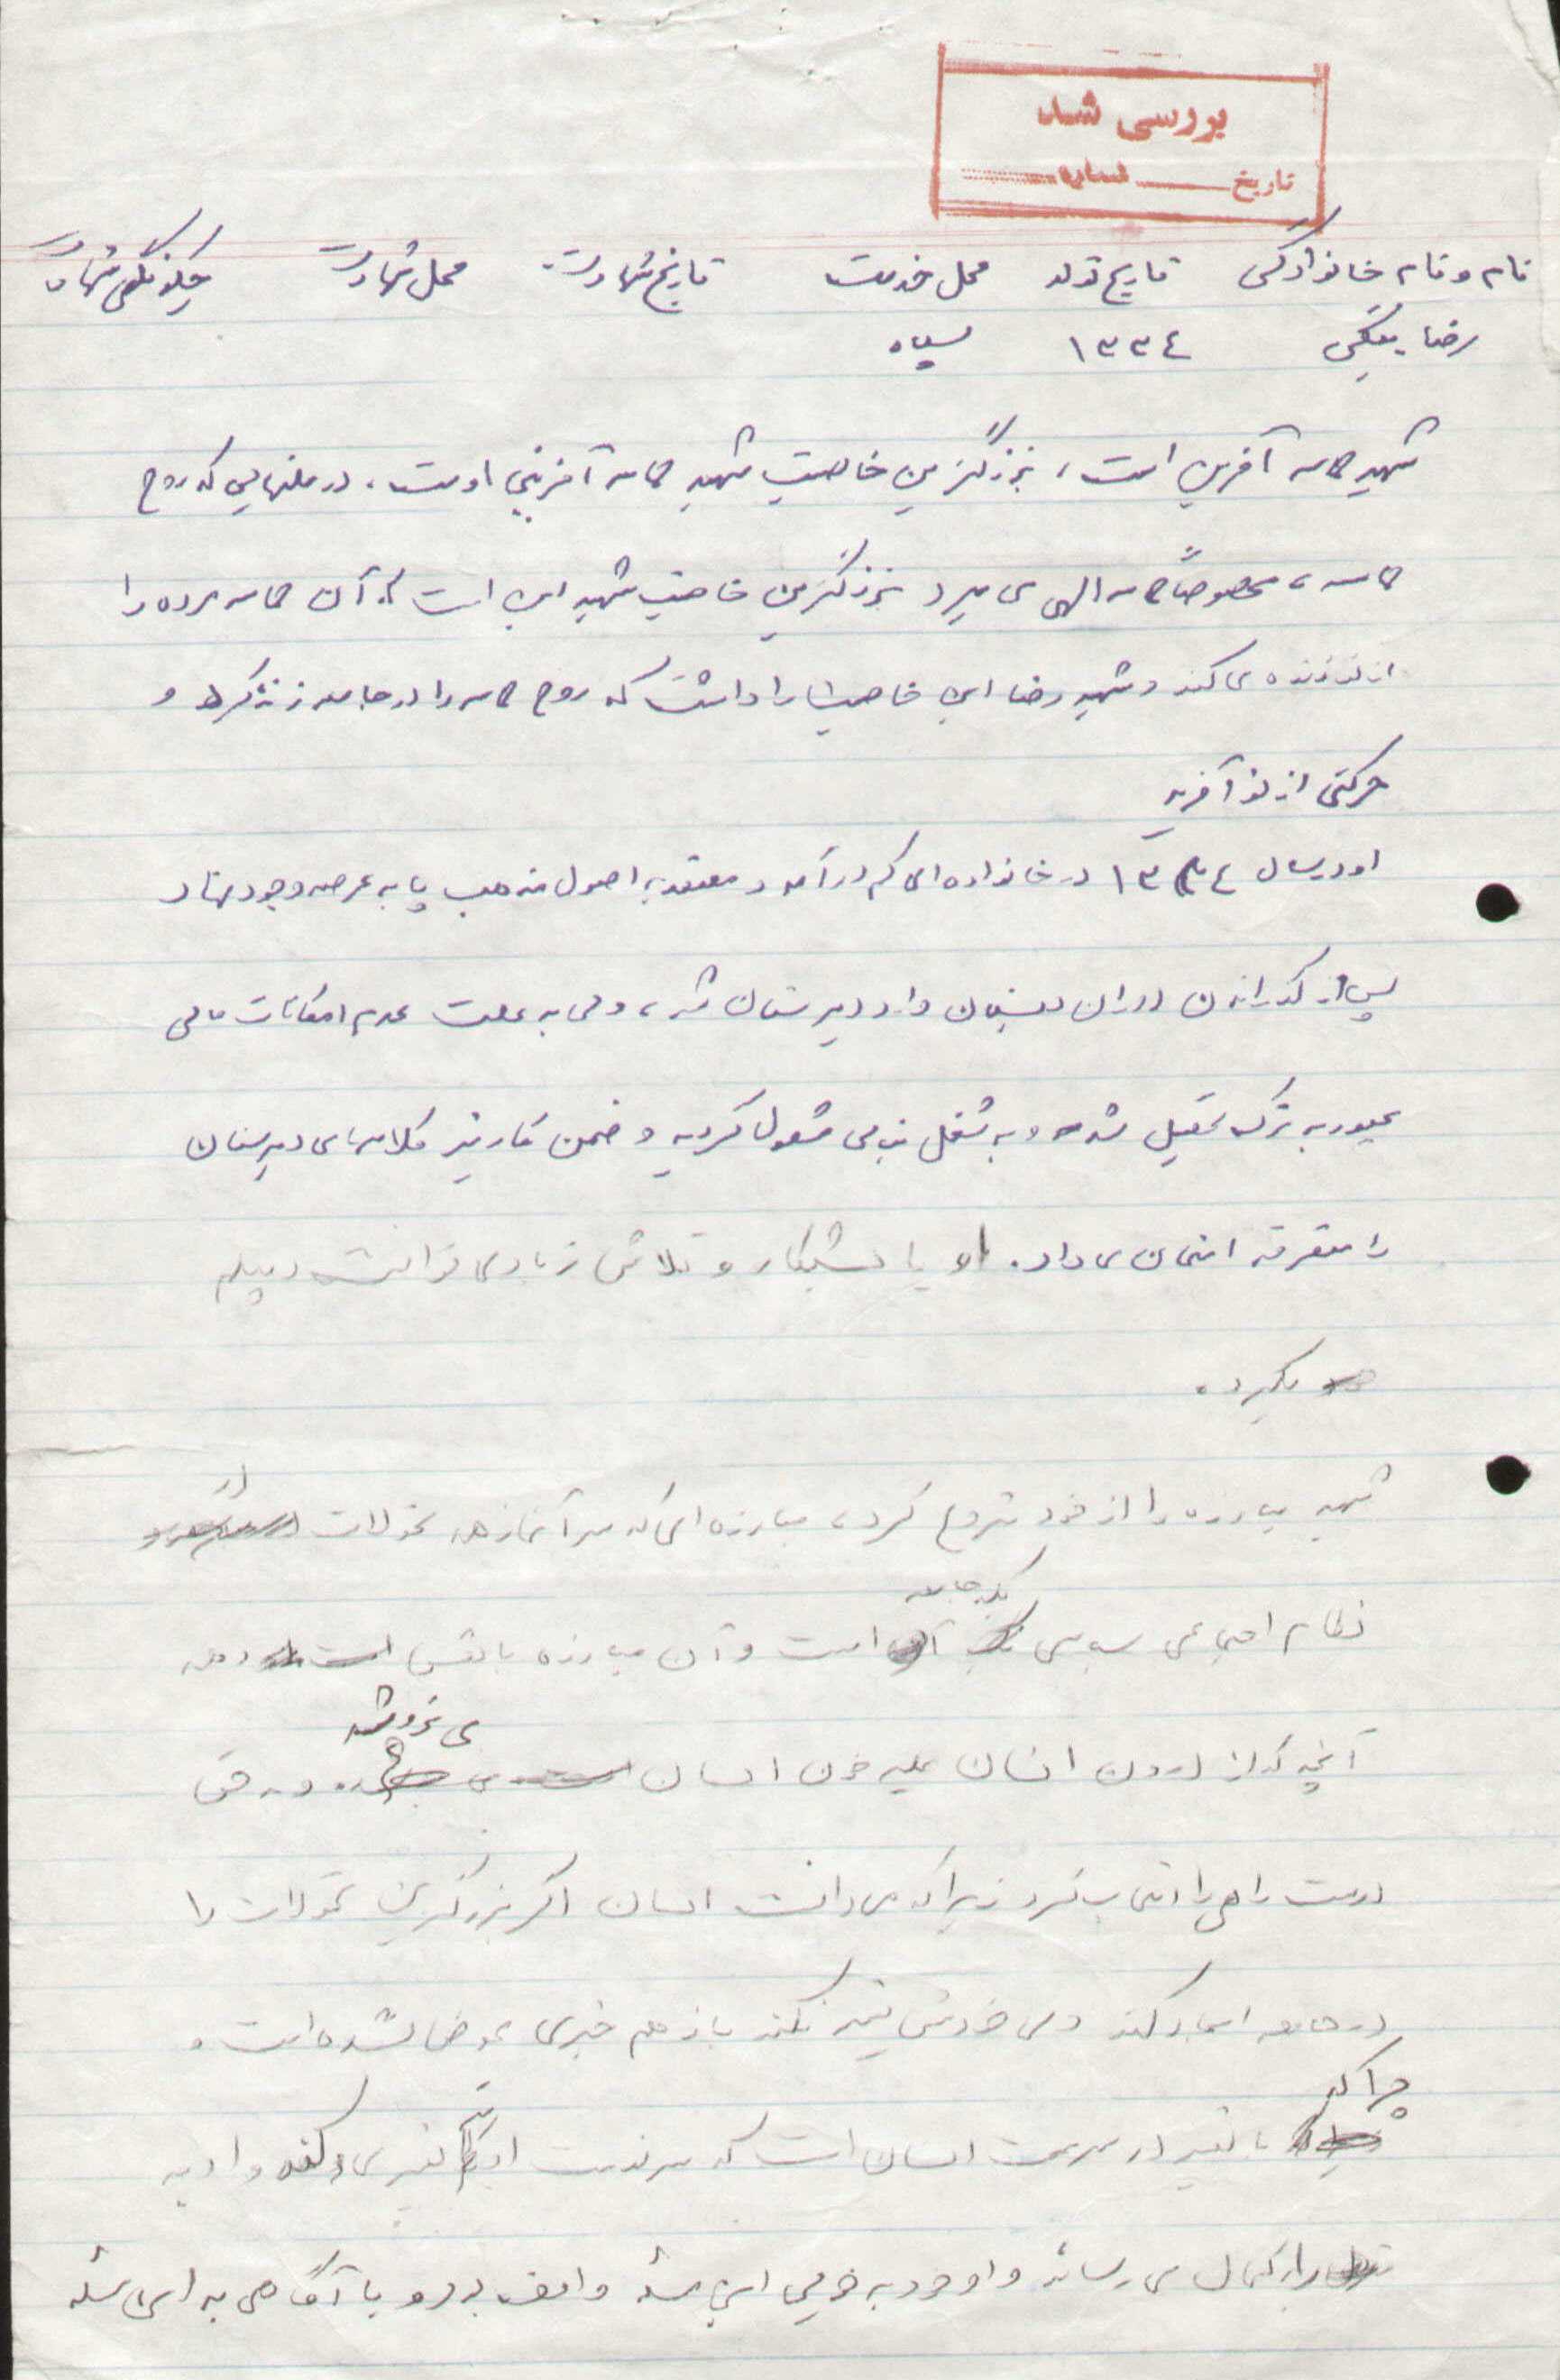 بررسی شد
تاریخ ــــ شماره ــــ
نام و نام خانوادگی تاریخ تولد محل خدمت تاریخ شهادت محل شهادت چگونگی شهادت
رضا ۱۳۳٤ سپاه
شهید حماسه آفرین است، بزرگترین خاصیت شهید حماسه آفرینی اوست، در ملتهایی که روح
حماسه، مخصوصاً حماسه الهی می میرد بزرگترین خاصیت شهید این است که آن حماسه مرده را
از نو زنده می کند و شهید رضا این خاصیت را داشت که روح حماسه را در جامعه زنده کرد و
حرکتی از نو آفرید
او در سال ۱۳۳٤ در خانواده ای کم درآمد و معتقد به اصول مذهب پا به عرصه وجود نهاد
پس از گذراندن دوران دبستان وارد دبیرستان شد، ولی به علت عدم امکانات مالی
مجبور به ترک تحصیل شد و به شغل مشغول گردید و ضمن کار نیز کلاسهای دبیرستان
را متفرقه امتحان می داد. او با پشتکار و تلاش زیادی توانست دیپلم
بگیرد.
شهید مبارزه را از خود شروع کرد، مبارزه ای که سرآغاز همه تحولات در
نظام اجتماعی سیاسی یک جامعه است و آن مبارزه با نفس و همه
آنچه که از درون انسان علیه خود انسان می خروشد و به حق
درست راهی را انتخاب کرد زیرا که می دانست انسان اگر بزرگترین تحولات را
در جامعه ایجاد کند ولی خودش تغییر نکند باز هم چیزی عوض نشده است.
چرا که با تغییر در انسان است که سرنوشت او تغییر می کند و او به
کمال می رساند و او خود به خوبی این مسئله واقف بود و با آگاهی به این مسئله